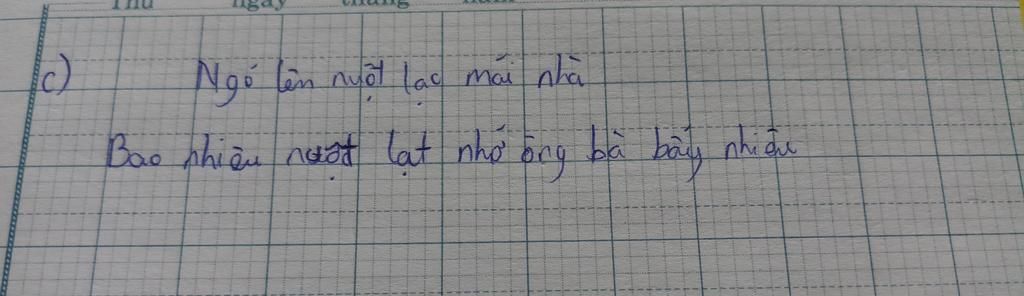 Thứ ngày tháng năm
c) Ngó lên nuột lạc mái nhà
Bao nhiêu nuột lạt nhớ ông bà bấy nhiêu